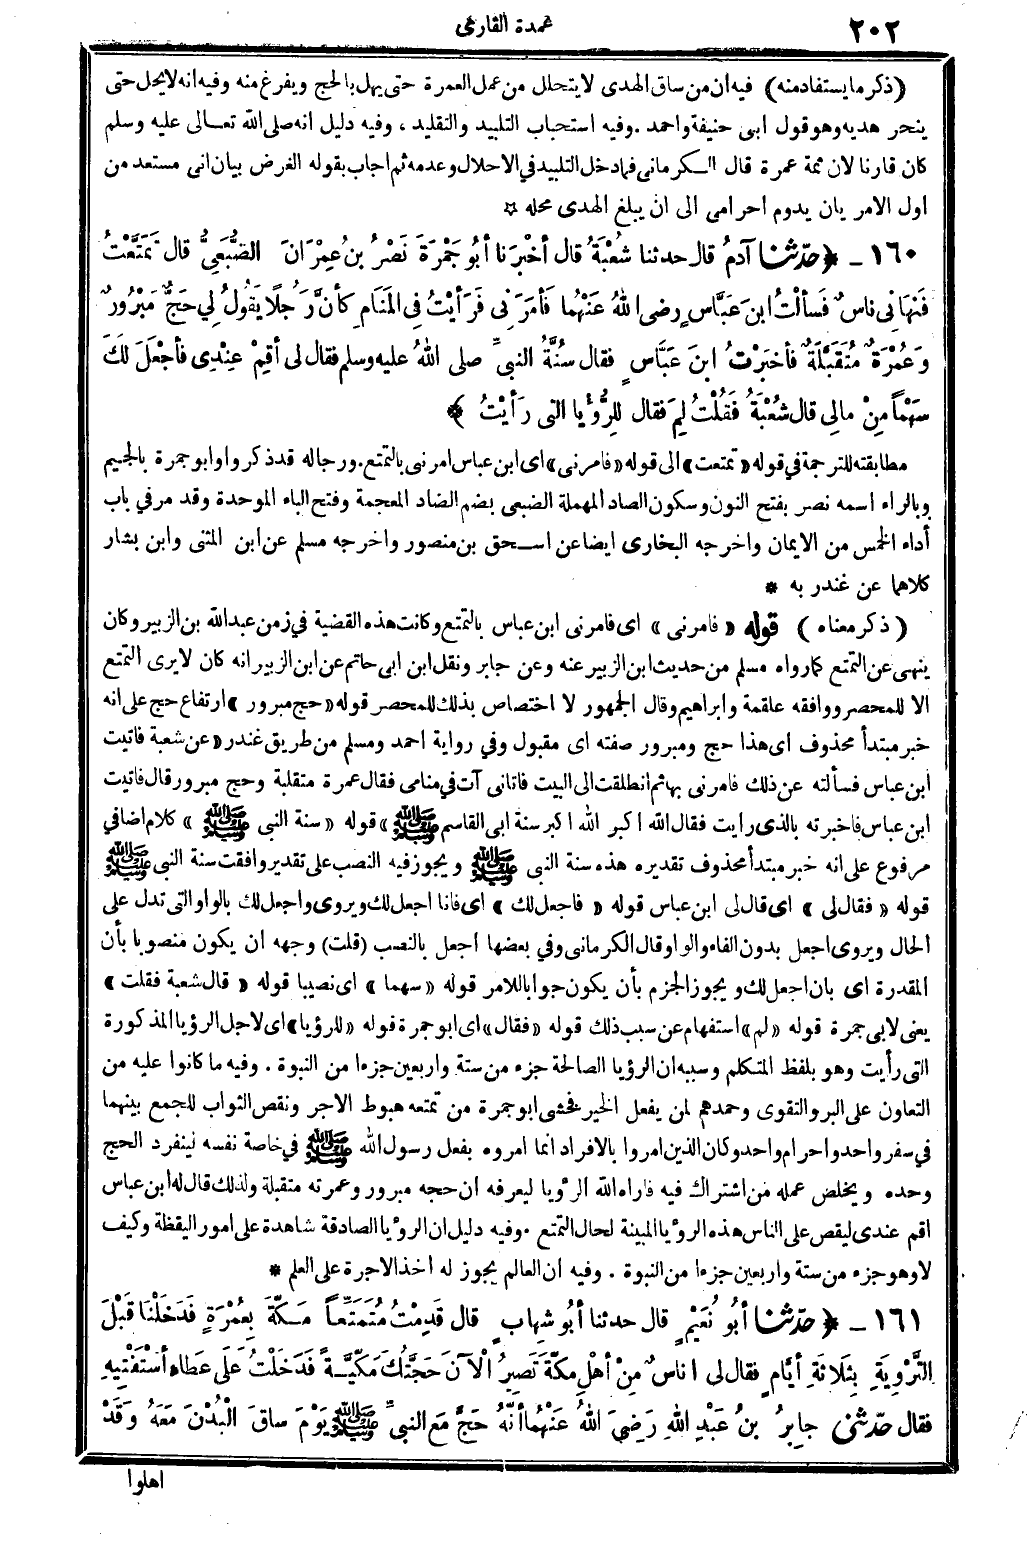 ٢٠٢
عمدة القارئ
(ذكر ما يستفاد منه) فيه ان من ساق الهدى لا يتحلل من عمل العمرة حتى يهل بالحج ويفرغ منه وفيه انه لا يحل حتى
ينحر هديه وهو قول ابى حنيفة واحمد . وفيه استحباب التلبيد والتقليد ، وفيه دليل انه صلى الله تعالى عليه وسلم
كان قارنا لان ثمة عمرة قال الكرمانى فما دخل التلبيد فى الاحلال وعدمه ثم اجاب بقوله الغرض بيان انى مستعد من
اول الامر بان يدوم احرامى الى ان يبلغ الهدى محله ☆
١٦٠ ـ ﴿ حدّثنا آدمُ قال حدثنا شُعْبَةُ قال أخْبَرَنا أبُو جَمْرَةَ نَصْرُ بنُ عِمْرَانَ الضُّبَعِيُّ قال تَمَتَّعْتُ
فَنَهَانِى ناسٌ فَسألْتُ ابنَ عَبَّاسٍ رضى اللهُ عَنْهُما فأمَرَنِى فَرَأيْتُ فِى المَنَامِ كأنَّ رَجُلًا يَقُولُ لِى حَجٌّ مَبْرُورٌ
وَعُمْرَةٌ مُتَقَبَّلَةٌ فأخبَرْتُ ابنَ عَبَّاسٍ فقال سُنَّةُ النبىِّ صلى اللهُ عليه وسلم فقال لى أقِمْ عِنْدِى فأجْعَلَ لَكَ
سَهْماً مِنْ مالِى قال شُعْبَةُ فَقُلْتُ لِمَ فقال لِلرُّؤْيا التى رَأيْتُ ﴾
مطابقته للترجمة فى قوله «تمتعت» الى قوله «فامرنى» اى ابن عباس امرنى بالتمتع . ورجاله قد ذكروا وابو جمرة بالجيم
وبالراء اسمه نصر بفتح النون وسكون الصاد المهملة الضبعى بضم الضاد المعجمة وفتح الباء الموحدة وقد مر فى باب
أداء الخمس من الايمان واخرجه البخارى ايضا عن اسحق بن منصور واخرجه مسلم عن ابن المثنى وابن بشار
كلاهما عن غندر به *
(ذكر معناه) قوله «فامرنى» اى فامرنى ابن عباس بالتمتع وكانت هذه القضية فى زمن عبدالله بن الزبير وكان
ينهى عن التمتع كما رواه مسلم من حديث ابن الزبير عنه وعن جابر ونقل ابن ابى حاتم عن ابن الزبير انه كان لا يرى التمتع
الا للمحصر ووافقه علقمة وابراهيم وقال الجمهور لا اختصاص بذلك للمحصر قوله «حج مبرور» ارتفاع حج على انه
خبر مبتدأ محذوف اى هذا حج ومبرور صفته اى مقبول وفى رواية احمد ومسلم من طريق غندر «عن شعبة فاتيت
ابن عباس فسألته عن ذلك فامرنى بها ثم انطلقت الى البيت فاتانى آت فى منامى فقال عمرة متقلبة وحج مبرور قال فاتيت
ابن عباس فاخبرته بالذى رايت فقال الله اكبر الله اكبر سنة ابى القاسم ﷺ» قوله «سنة النبى ﷺ» كلام اضافى
مرفوع على انه خبر مبتدأ محذوف تقديره هذه سنة النبى ﷺ ويجوز فيه النصب على تقدير وافقت سنة النبى ﷺ
قوله «فقال لى» اى قال لى ابن عباس قوله «فاجعل لك» اى فانا اجعل لك ويروى واجعل لك بالواو التى تدل على
الحال ويروى اجعل بدون الفاء والواو قال الكرمانى وفى بعضها اجعل بالنصب (قلت) وجهه ان يكون منصوبا بأن
المقدرة اى بان اجعل لك ويجوز الجزم بأن يكون جوابا للامر قوله «سهما» اى نصيبا قوله «قال شعبة فقلت»
يعنى لابى جمرة قوله «لم» استفهام عن سبب ذلك قوله «فقال» اى ابو جمرة قوله «للرؤيا» اى لاجل الرؤيا المذكورة
التى رأيت وهو بلفظ المتكلم وسببه ان الرؤيا الصالحة جزء من ستة واربعين جزءا من النبوة . وفيه ما كانوا عليه من
التعاون على البر والتقوى وحمدهم لمن يفعل الخير فخشى ابو جمرة من تمتعه هبوط الاجر ونقص الثواب للجمع بينهما
فى سفر واحد واحرام واحد وكان الذين امروا بالافراد انما امروه بفعل رسول الله ﷺ فى خاصة نفسه لينفرد الحج
وحده ويخلص عمله من اشتراك فيه فاراه الله الرؤيا ليعرفه ان حجه مبرور وعمرته متقبلة ولذلك قال له ابن عباس
اقم عندى ليقص على الناس هذه الرؤيا المبينة لحال التمتع . وفيه دليل ان الرؤيا الصادقة شاهدة على امور اليقظة وكيف
لا وهو جزء من ستة واربعين جزءا من النبوة . وفيه ان العالم يجوز له أخذ الاجرة على العلم *
١٦١ ـ ﴿ حدّثنا أبُو نُعَيْمٍ قال حدثنا أبُو شِهابٍ قال قَدِمْتُ مُتَمَتِّعاً مَكّةَ بِعُمْرَةٍ فَدَخَلْنا قَبْلَ
التَّرْوِيَةِ بِثَلَاثَةِ أيَّامٍ فقال لى اناسٌ مِنْ أهْلِ مكّةَ تَصِيرُ الْآنَ حَجَّتُكَ مَكِّيَّةً فَدَخَلْتُ عَلَى عَطاءٍ أسْتَفْتِيهِ
فقال حدّثنى جابِرُ بنُ عَبْدِ اللهِ رَضِىَ اللهُ عَنْهُما أنَّهُ حَجَّ مَعَ النبىِّ ﷺ يَوْمَ ساقَ الْبُدْنَ مَعَهُ وَقَدْ
اهلوا